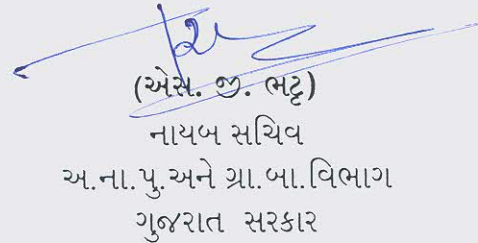 (એસ. જી. ભટ્ટ)
નાયબ સચિવ
અ.ના.પુ.અને ગ્રા.બા.વિભાગ
ગુજરાત સરકાર